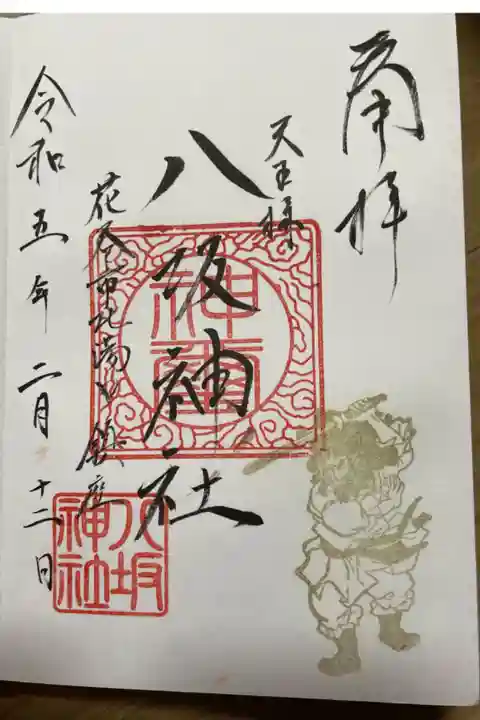 奉拝
天王様
八坂神社
花巻市北湯口鎮座
令和五年二月十二日
神璽
八坂神社